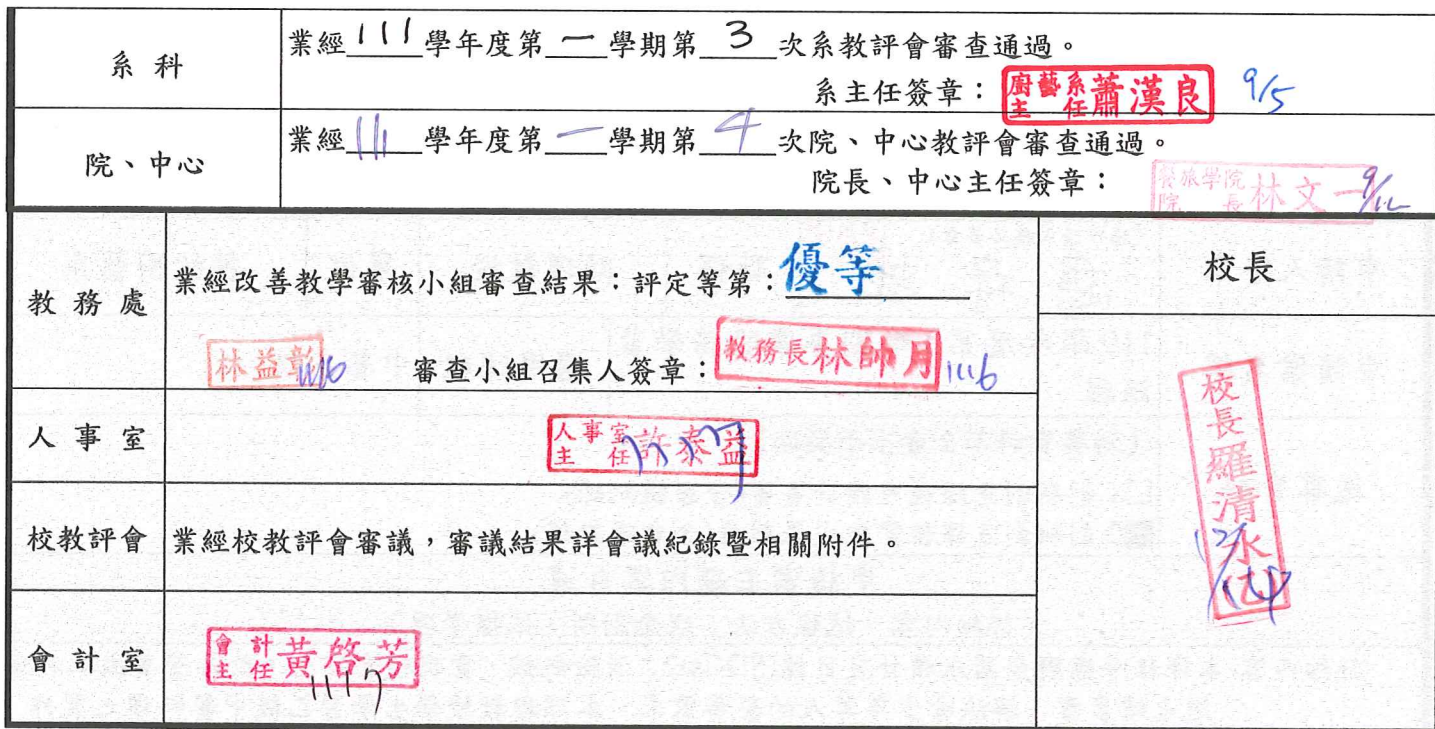 系科
業經111學年度第一學期第3次系教評會審查通過。
系主任簽章：廚藝系主任蕭漢良 9/5
院、中心
業經111學年度第一學期第4次院、中心教評會審查通過。
院長、中心主任簽章：餐旅學院院長林文一 9/12
教務處
業經改善教學審核小組審查結果：評定等第：優等
林益彰 1116 審查小組召集人簽章：教務長林帥月 1116
人事室
人事室主任許泰益
校教評會
業經校教評會審議，審議結果詳會議紀錄暨相關附件。
會計室
會計主任黃啓芳
1117
校長
校長羅清水(乙)